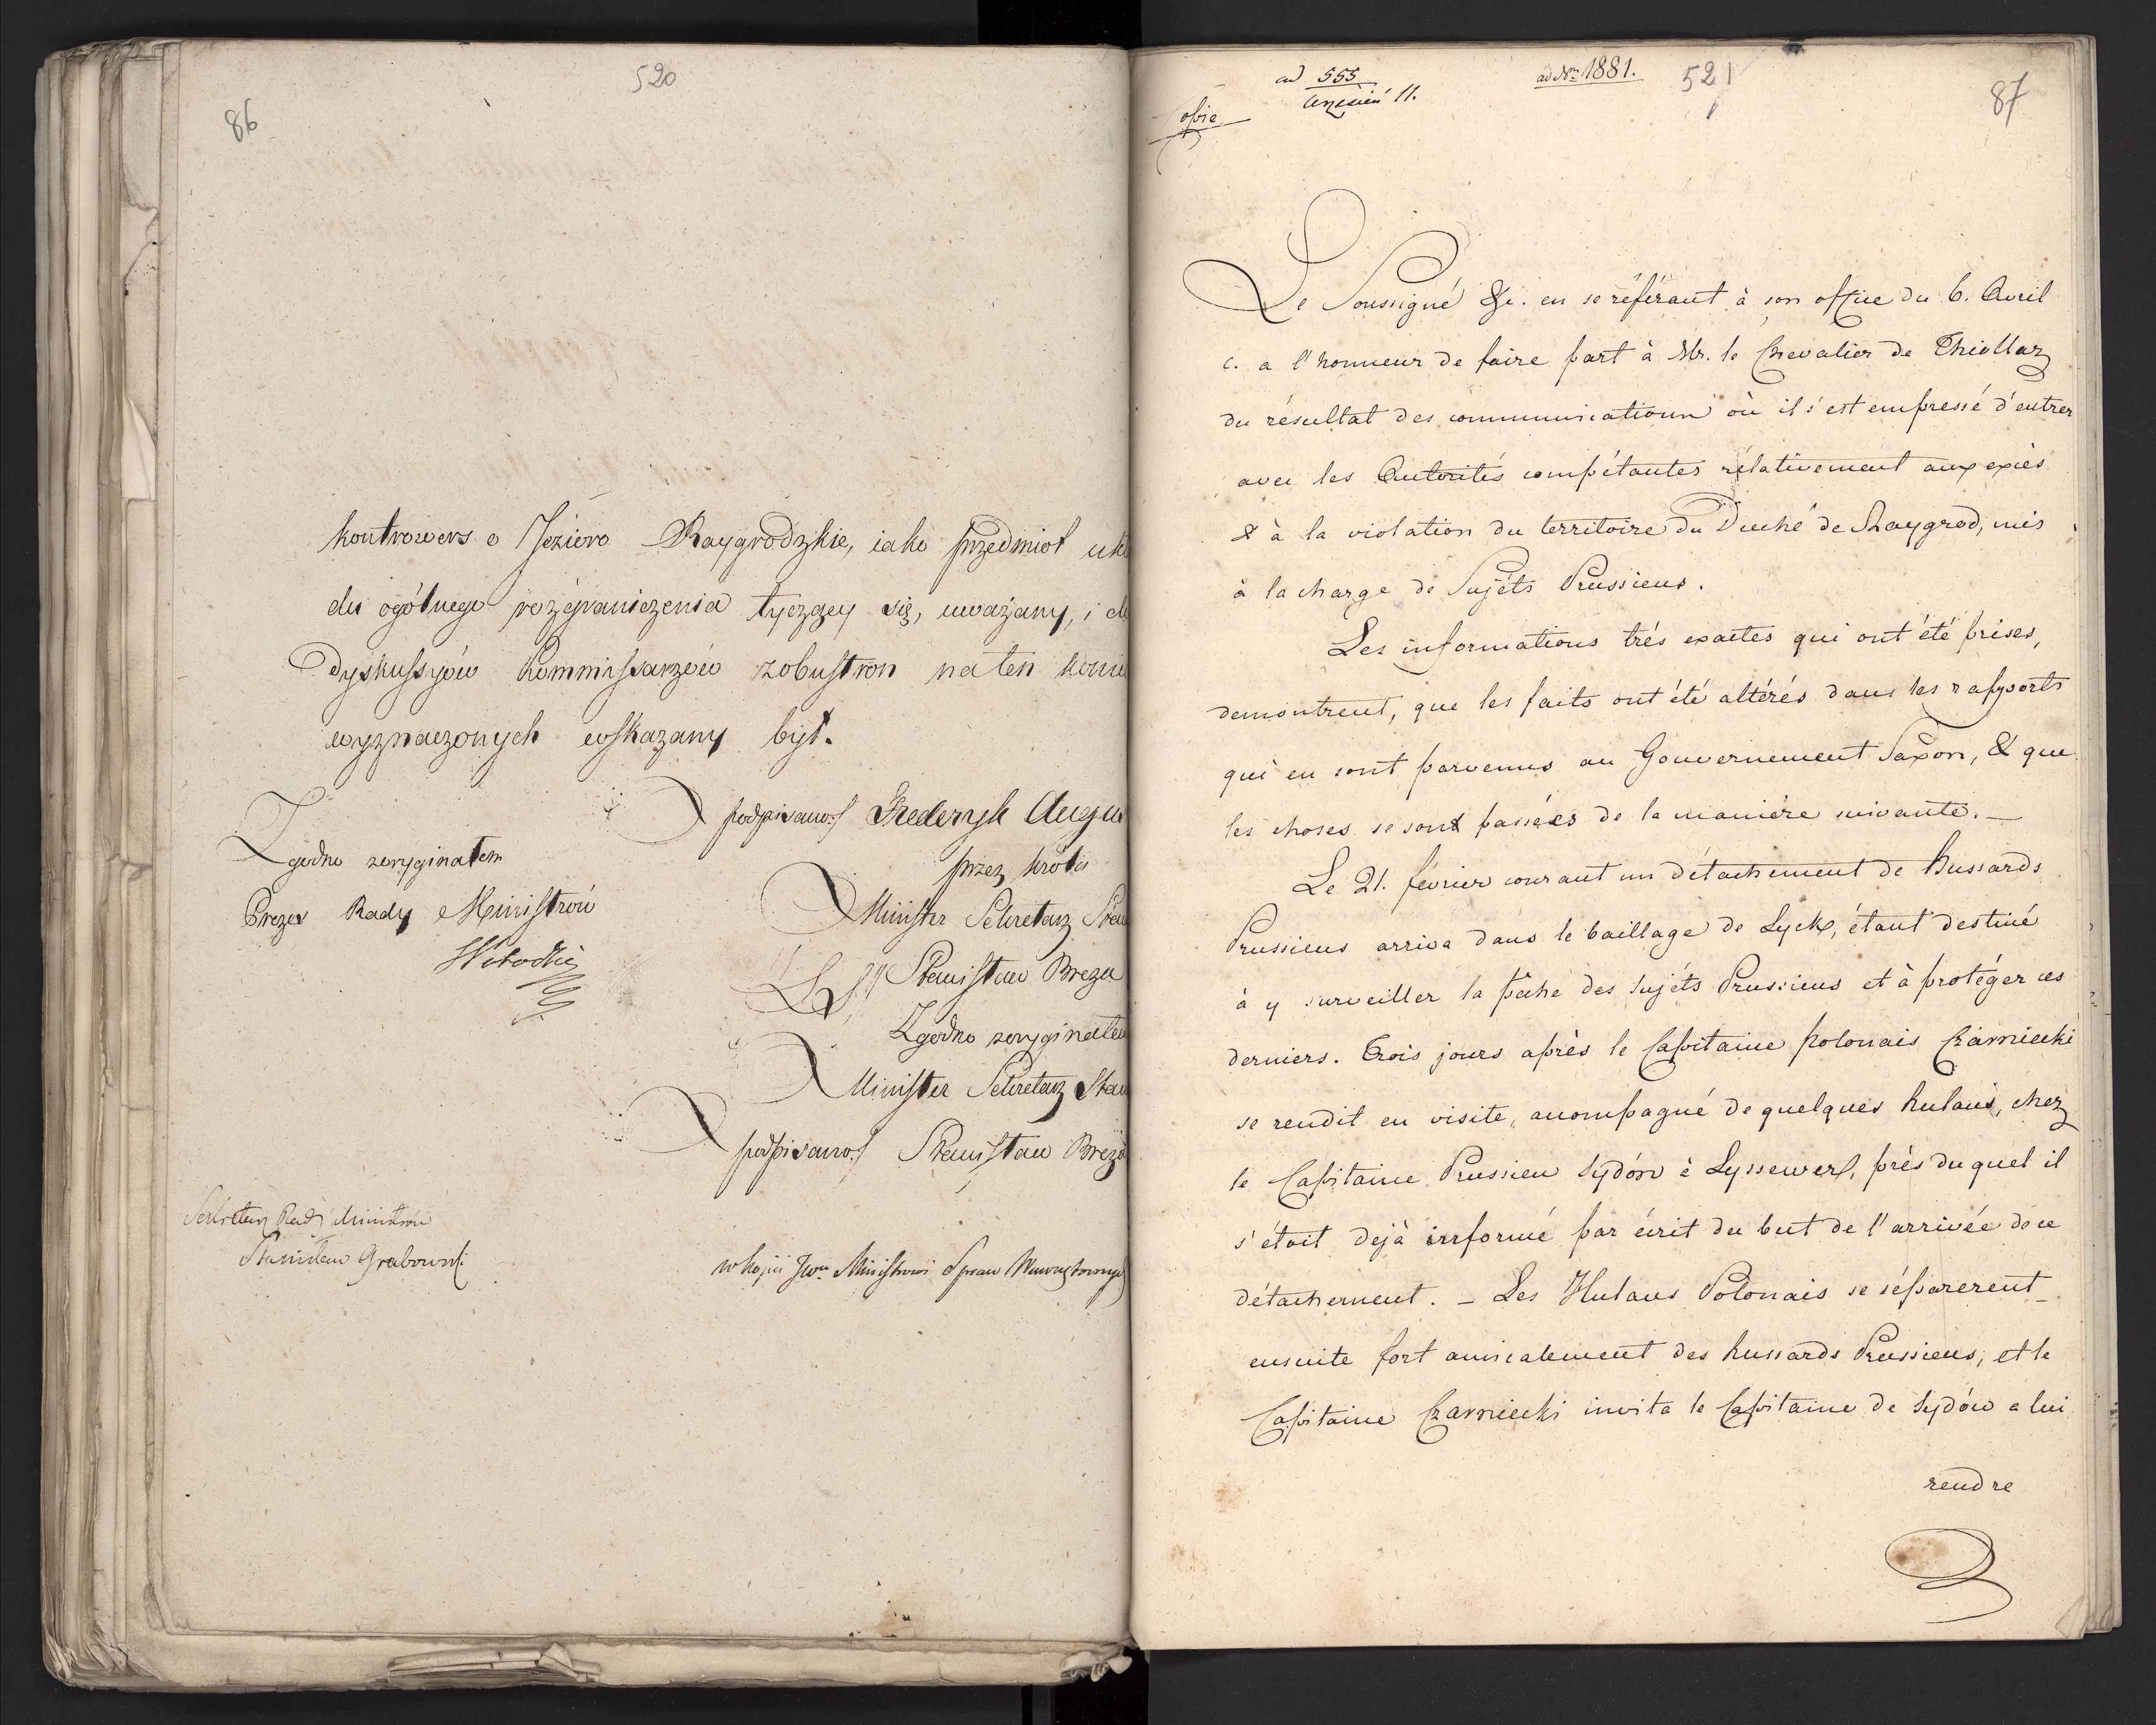 520
86
kontrowers o Jezioro Raygrodzkie, iako przedmiot ukła
du ogólnego rozgraniczenia tyczącey się, uważany, i do
Dyskussyów Kommissarzów zobustron na ten koniec
wyznaczonych wskazany był.
podpisano/ Frederyk Augu
przez króla
Zgodno zoryginałem
Minister Sekretarz Stanu
Prezes Rady Ministrów
Stanisław Breza
Zgodno zoryginałem
Minister Sekretarz Stanu
podpisano/ Stanisław Breza
Sekretarz Rady Ministrów
Stanisław Grabowski
w kopii JWu Ministrowi Spraw Wewnętrznych
ad 555 ad Nrm 1881. 521 87
Wrzesień 11.
Copie
Le Soussigné &c. en se référant à son office du 6. Avril
c. a l'honneur de faire part à Mr. le Chevalier de Thiollaz
du résultat des communications où il s'est empressé d'entrer
avec les Autorités compétantes rélativement aux excès
& à la violation du territoire du Duché de Raygrod, mis
à la charge de Sujéts Prussiens.
Les informations trés exactes qui ont été prises,
demontrent, que les faits ont été altérés dans les rapports
qui en sont parvenus au Gouvernement Saxon, & que
les choses se sont passées de la maniére suivante. _
Le 21. février courant un détachement de Hussards
Prussiens arriva dans le baillage de Lyck, étant destiné
à y surveiller la pêche des Sujéts Prussiens et à protéger ces
derniers. Trois jours après le Capitaine polonais Czarniecki
se rendit en visite, accompagné de quelques hulans, chez
le Capitaine Prussien Sydów à Lyssewen, près du quel il
s'étoit dejà informé par écrit du but de l'arrivée de ce
détachement. _ Les Hulans Polonais se séparerent
ensuite fort amicalement des hussards Prussiens, et le
Capitaine Czarniecki invita le Capitaine de Sydów a lui
rendre